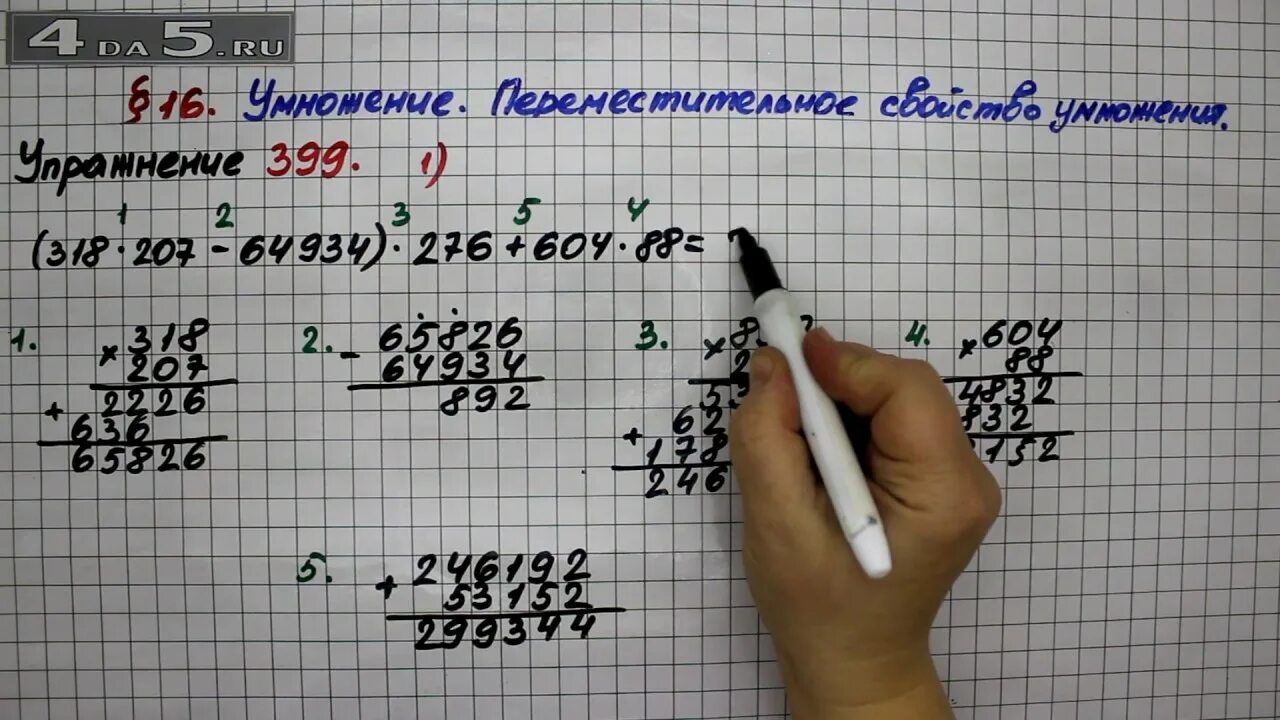 4DA5.RU
§ 16. Умножение. Переместительное свойство умножения.
Упражнение 399. 1)
1 2 3 5 4
(318 · 207 - 64934) · 276 + 604 · 88 =
1.
× 318
207
2226
+ 636
65826
2.
- 65826
64934
892
3.
× 8
2
5
62
+ 178
246
4.
× 604
88
4832
832
152
5.
+ 246192
53152
299344